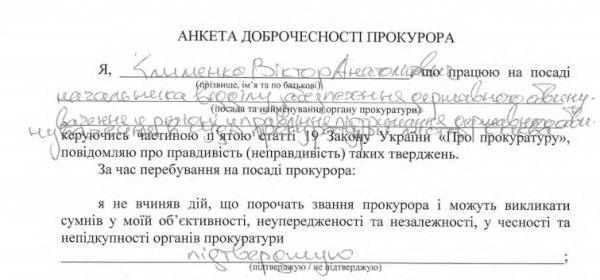 АНКЕТА ДОБРОЧЕСНОСТІ ПРОКУРОРА
Я, Клименко Віктор Анатолійович, що працюю на посаді
(прізвище, ім'я та по батькові)
начальника відділу забезпечення державного обвину-
(посада та найменування органу прокуратури)
вачення в регіоні управління підтримання державного обви-
нувачення в суді прокуратури міста Києва
керуючись частиною п'ятою статті 19 Закону України «Про прокуратуру»,
повідомляю про правдивість (неправдивість) таких тверджень.
За час перебування на посаді прокурора:
я не вчиняв дій, що порочать звання прокурора і можуть викликати
сумнів у моїй об'єктивності, неупередженості та незалежності, у чесності та
непідкупності органів прокуратури
підтверджую ;
(підтверджую / не підтверджую)